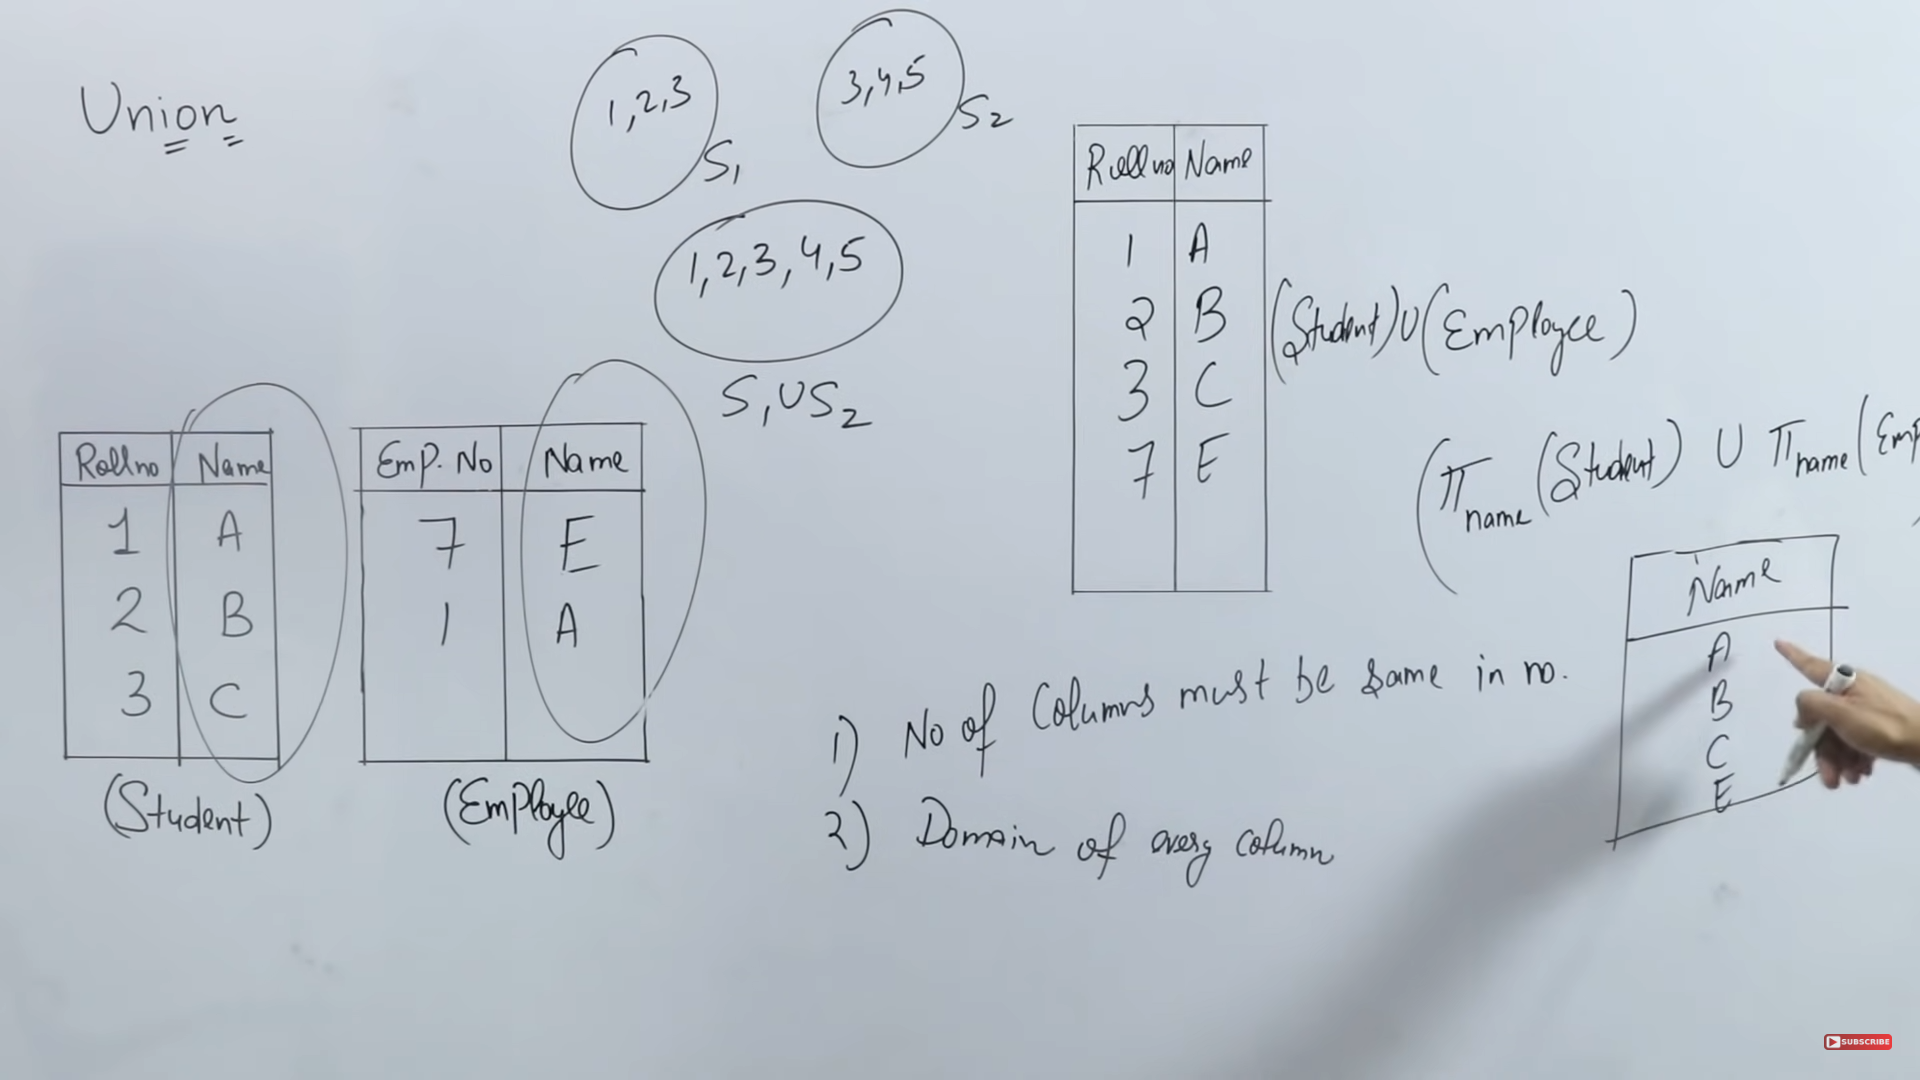 Union
1,2,3
S1
3,4,5
S2
1,2,3,4,5
S1US2
Rollno Name
1 A
2 B
3 C
(Student)
Emp.No Name
7 E
1 A
(Employee)
Rollno Name
1 A
2 B
3 C
7 E
(Student)U(Employee)
(πname(Student) U πname(Emp
Name
A
B
C
E
1) No of Columns must be same in no.
2) Domain of every column
SUBSCRIBE